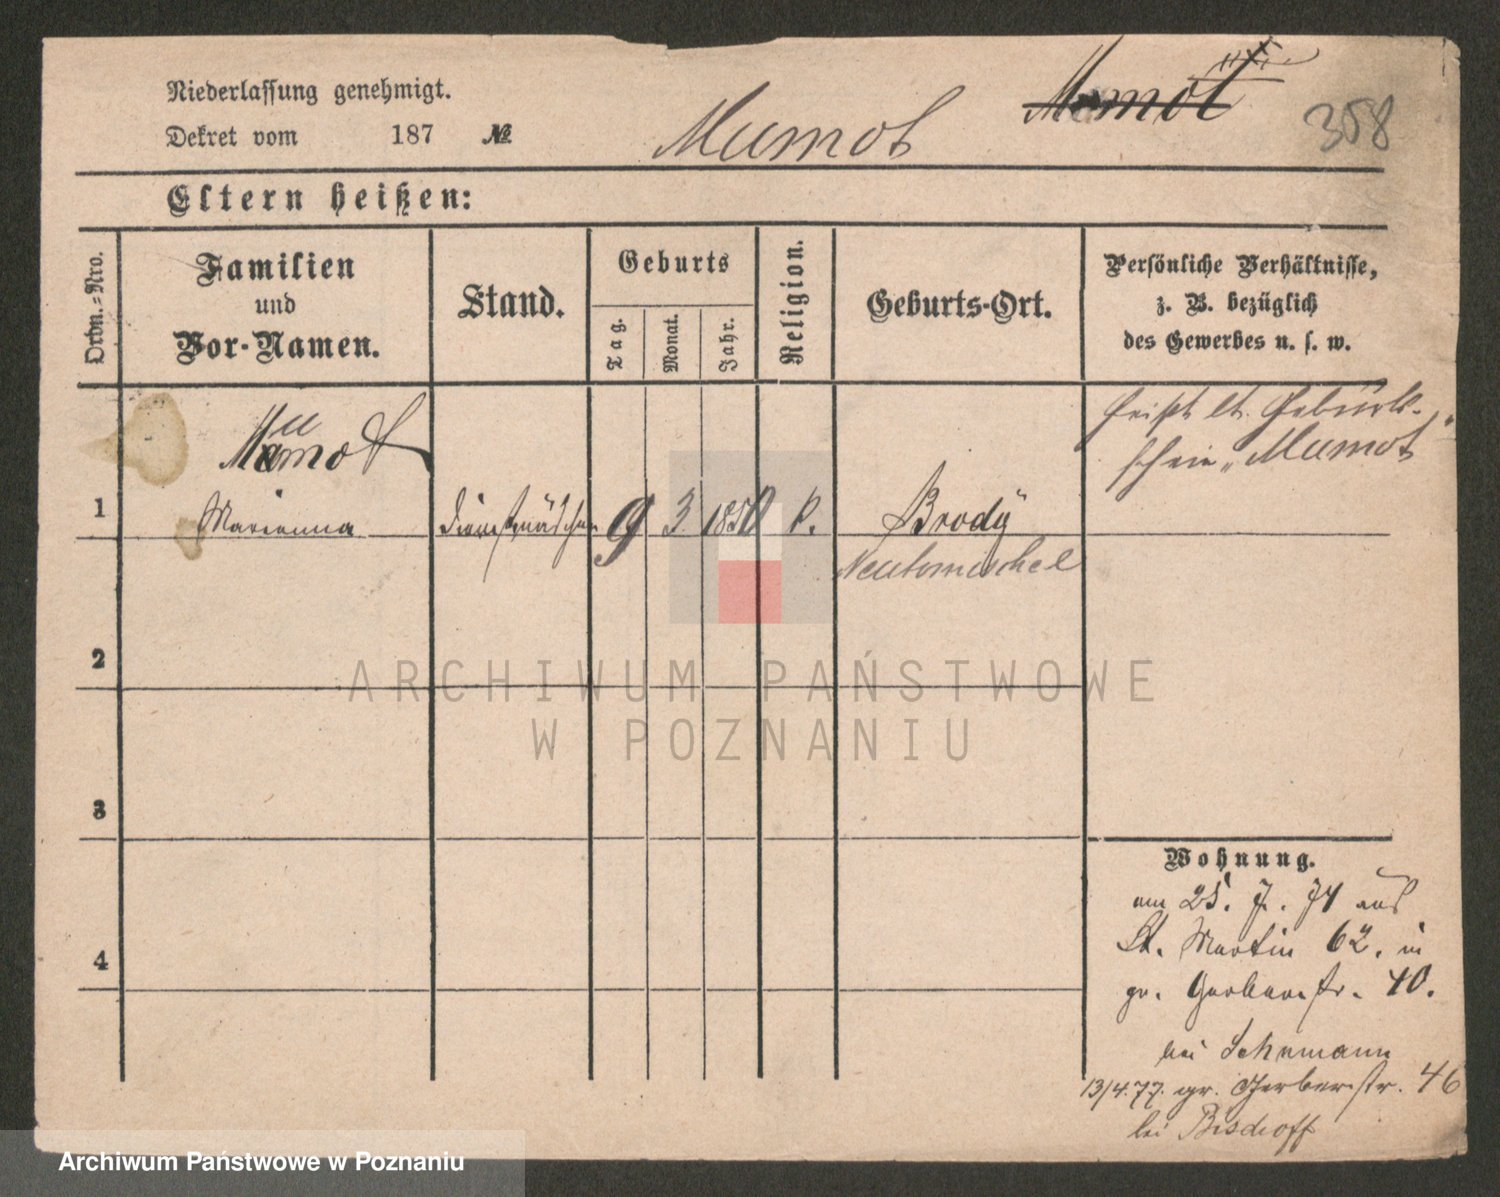 Niederlassung genehmigt.
Dekret vom 187 №
Mumot
Mamot
358
Eltern heißen:
Ordn.-Nro.
Familien
und
Vor-Namen.
Stand.
Geburts
Tag.
Monat.
Jahr.
Religion.
Geburts-Ort.
Persönliche Verhältnisse,
z. B. bezüglich
des Gewerbes u. s. w.
heißt lt. Geburts-
schein „Mumot“
Mumot
1 Marianna Dienstmädchen 9 3. 1850 k. Brody
Neutomischel
2
3
4
Wohnung.
am 25. 7. 74 aus
St. Martin 62. in
gr. Gerberstr. 40.
bei Lehmann
13/4.77. gr. Gerberstr. 46
bei Bischoff
ARCHIWUM PAŃSTWOWE
W POZNANIU
Archiwum Państwowe w Poznaniu